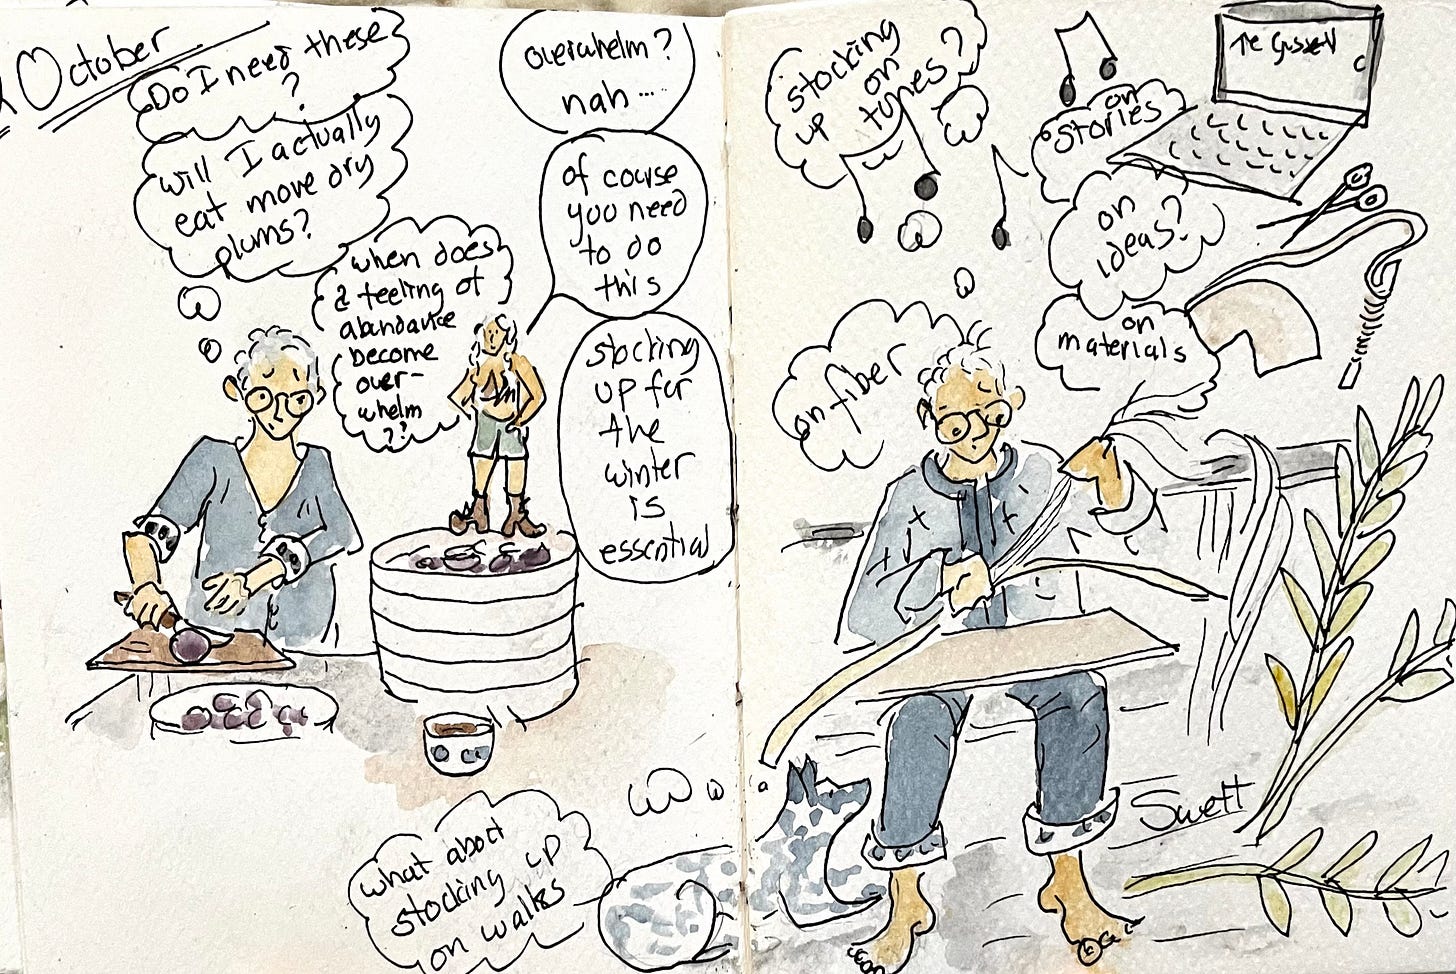 October
Do I need these
?
will I actually
eat more dry
plums?
when does
a feeling of
abundance
become
over-
whelm
??
overwhelm?
nah ....
of course
you need
to do
this
stocking
up for
the
winter
is
essential
what about
stocking up
on walks
stocking
up on
tunes?
on
stories
on
ideas?
on
materials
on fiber
Swett